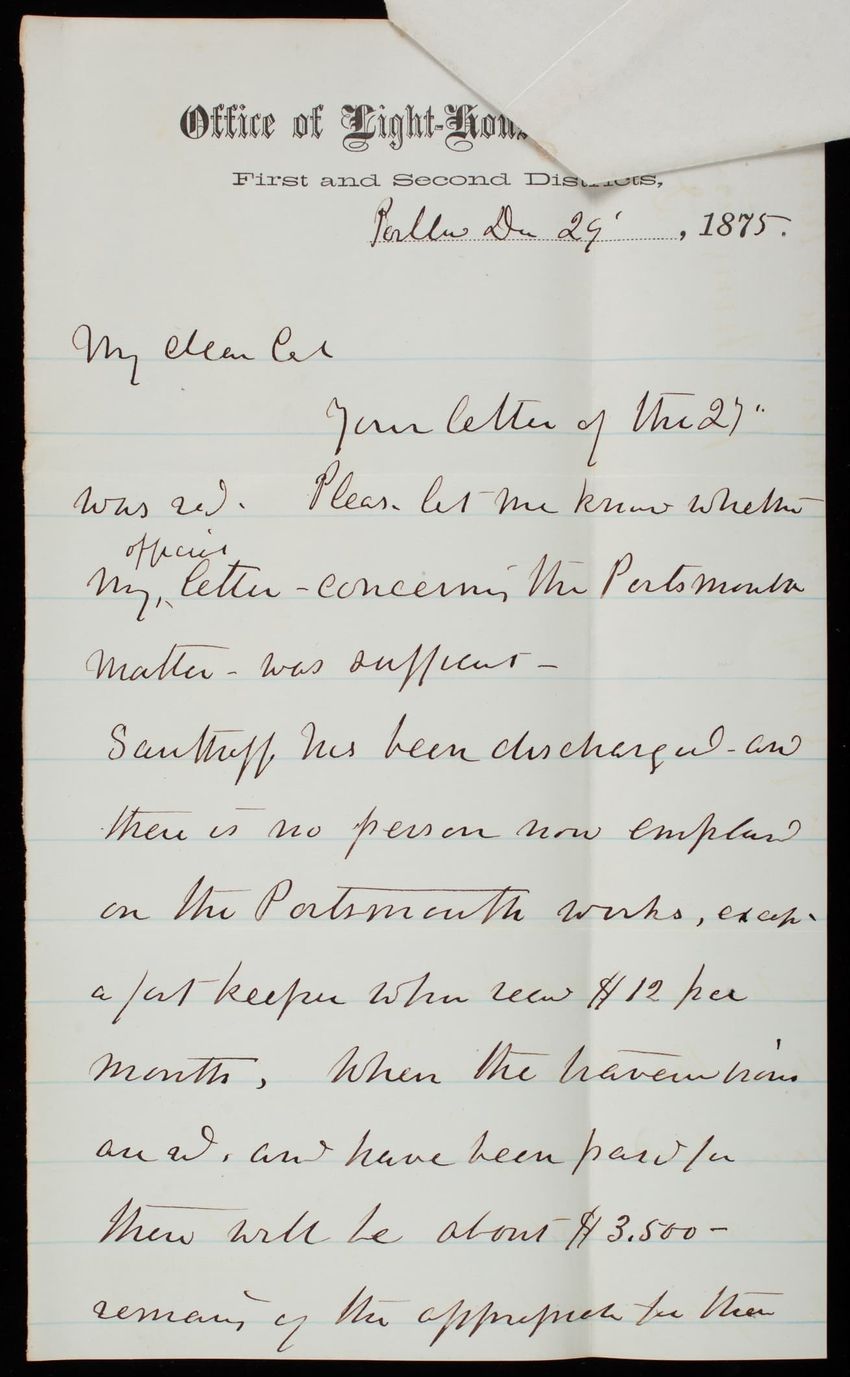 Office of Light-Hou
First and Second Districts,
Dec 29', 1875.
My dear Col
Your letter of the 27"
was recd. Please let me know whether
official
my, letter - concerning the Portsmouth
matter - was sufficient -
has been discharged - and
there is no person now employed
on the Portsmouth works, except
a fort keeper who recvs $12 per
month, When the traverse irons
are recd. and have been paid for
there will be about $3.500 -
remaing of the appropriatn for these